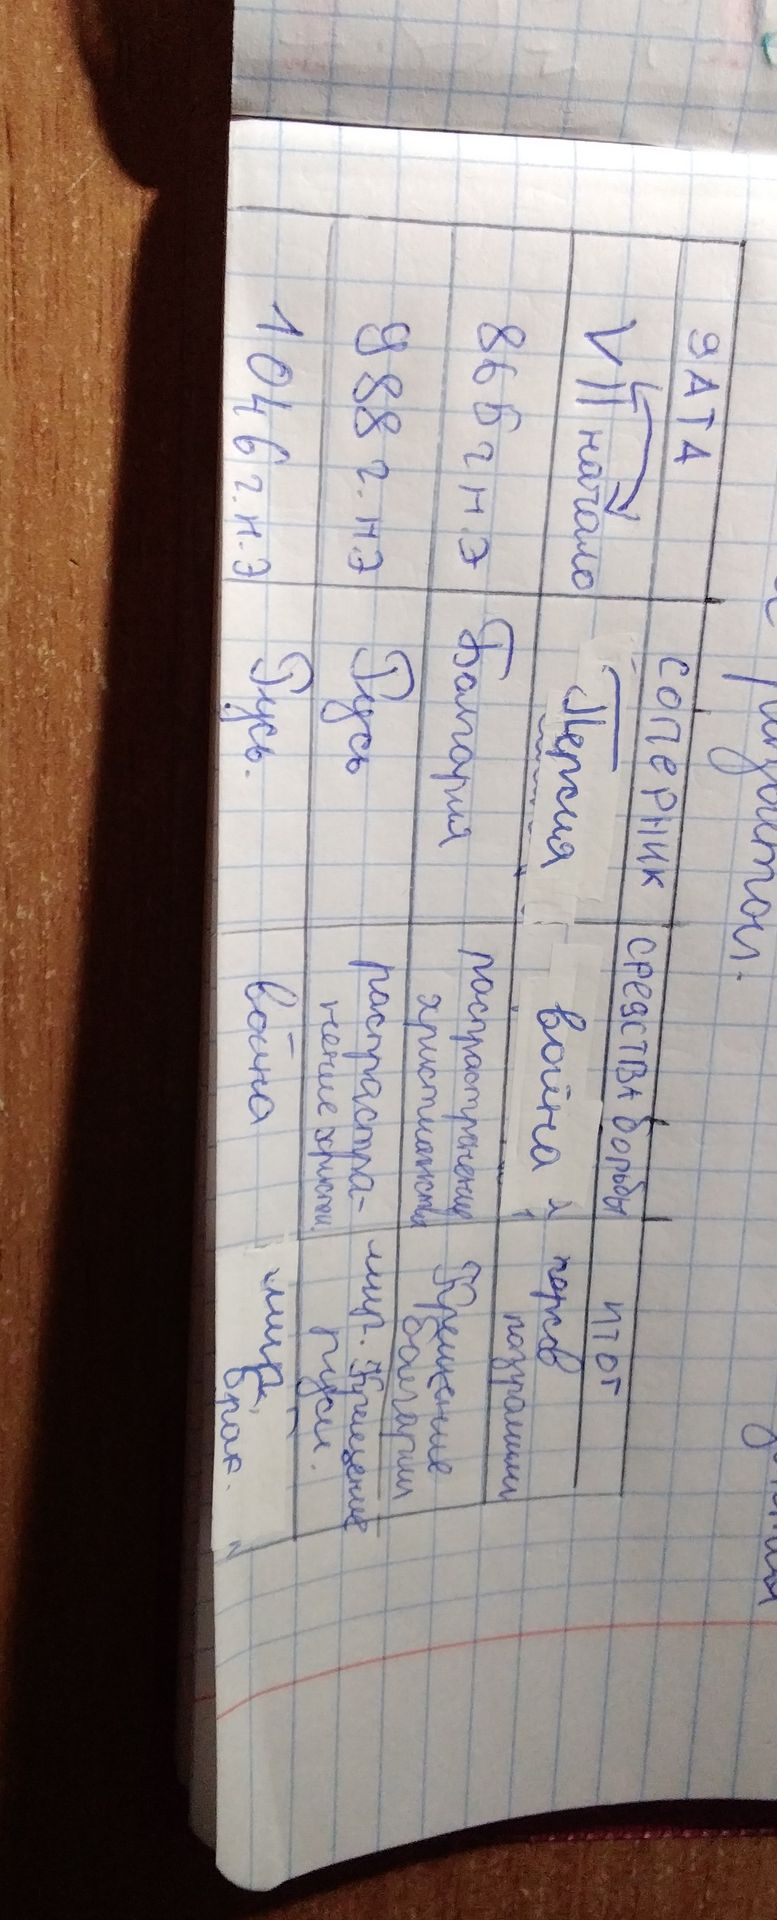 Византии.
ДАТА СОПЕРНИК СРЕДСТВА борьбы ИТОГ
VII начало Персия война персов
разгромили
865 г н.э Болгария распространение Крещение
христианства болгарии
988 г. н.э Русь распрастра- мир. Крещение
нение христи. руси.
1046 г. н.э Русь. война мир,
брак.